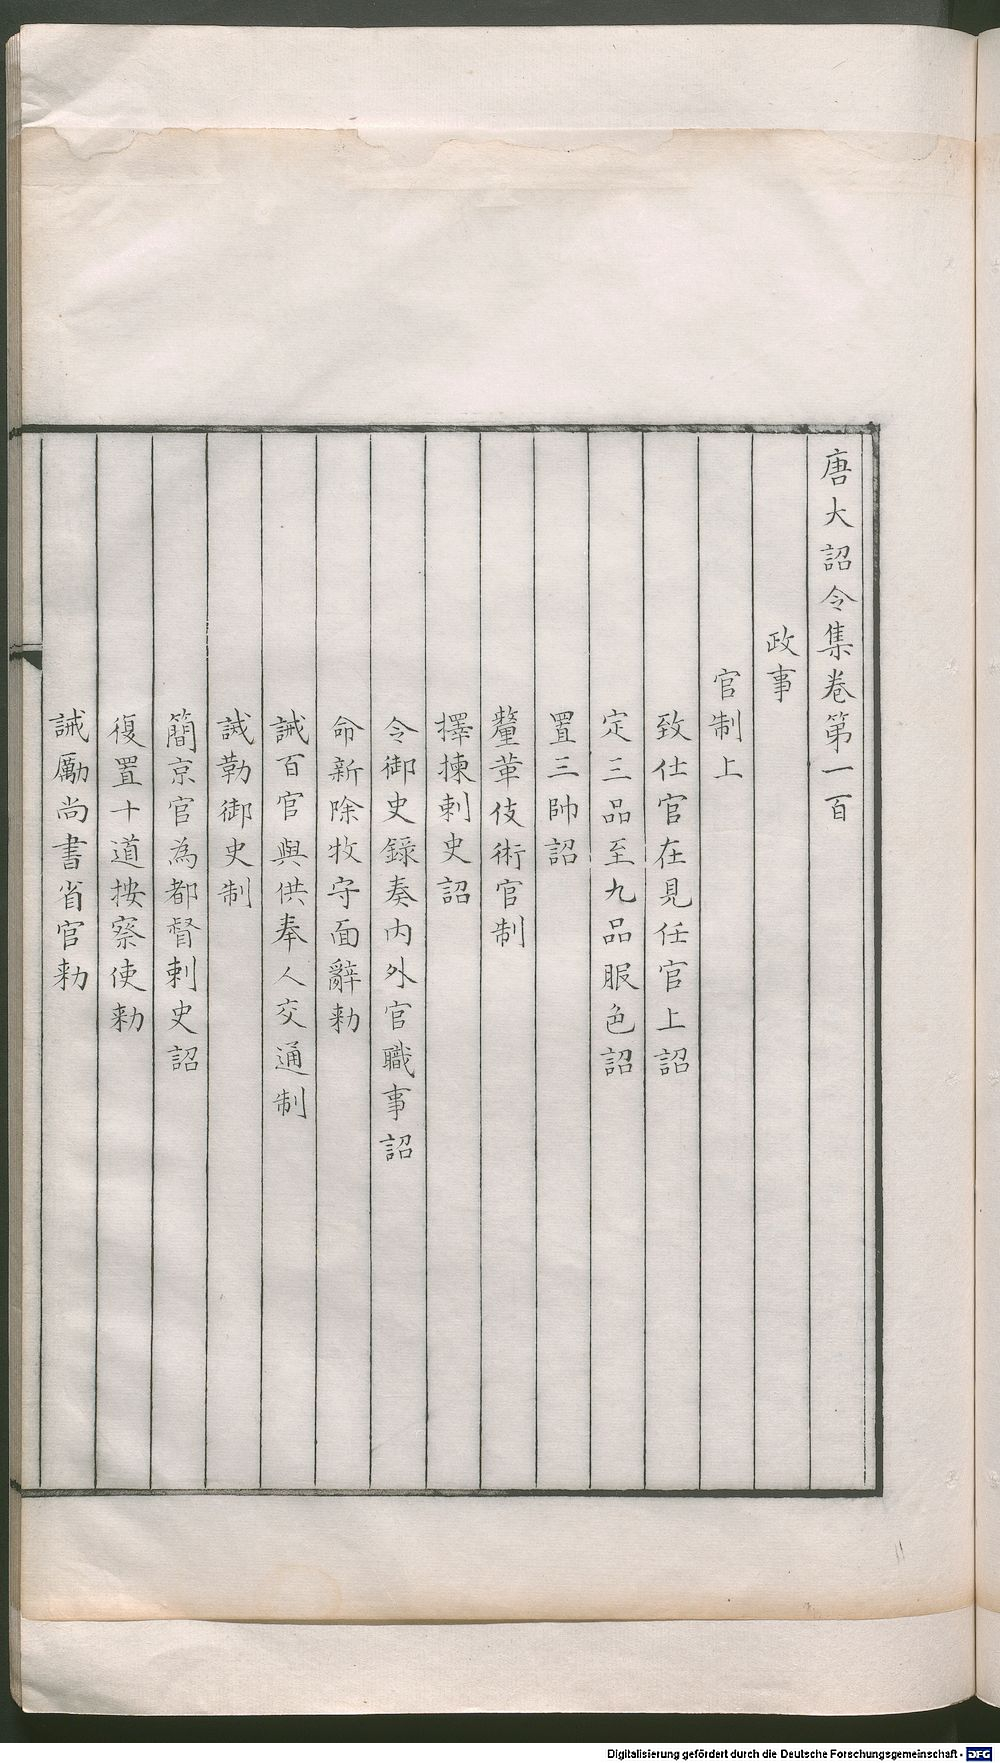 唐大詔令集卷第一百
政事
官制上
致仕官在見任官上詔
定三品至九品服色詔
置三帥詔
釐革伎術官制
擇揀刺史詔
令御史錄奏内外官職事詔
命新除牧守面辭勑
誡百官與供奉人交通制
誡勒御史制
簡京官為都督刺史詔
復置十道按察使勑
誡勵尚書省官勑
Digitalisierung gefördert durch die Deutsche Forschungsgemeinschaft - DFG